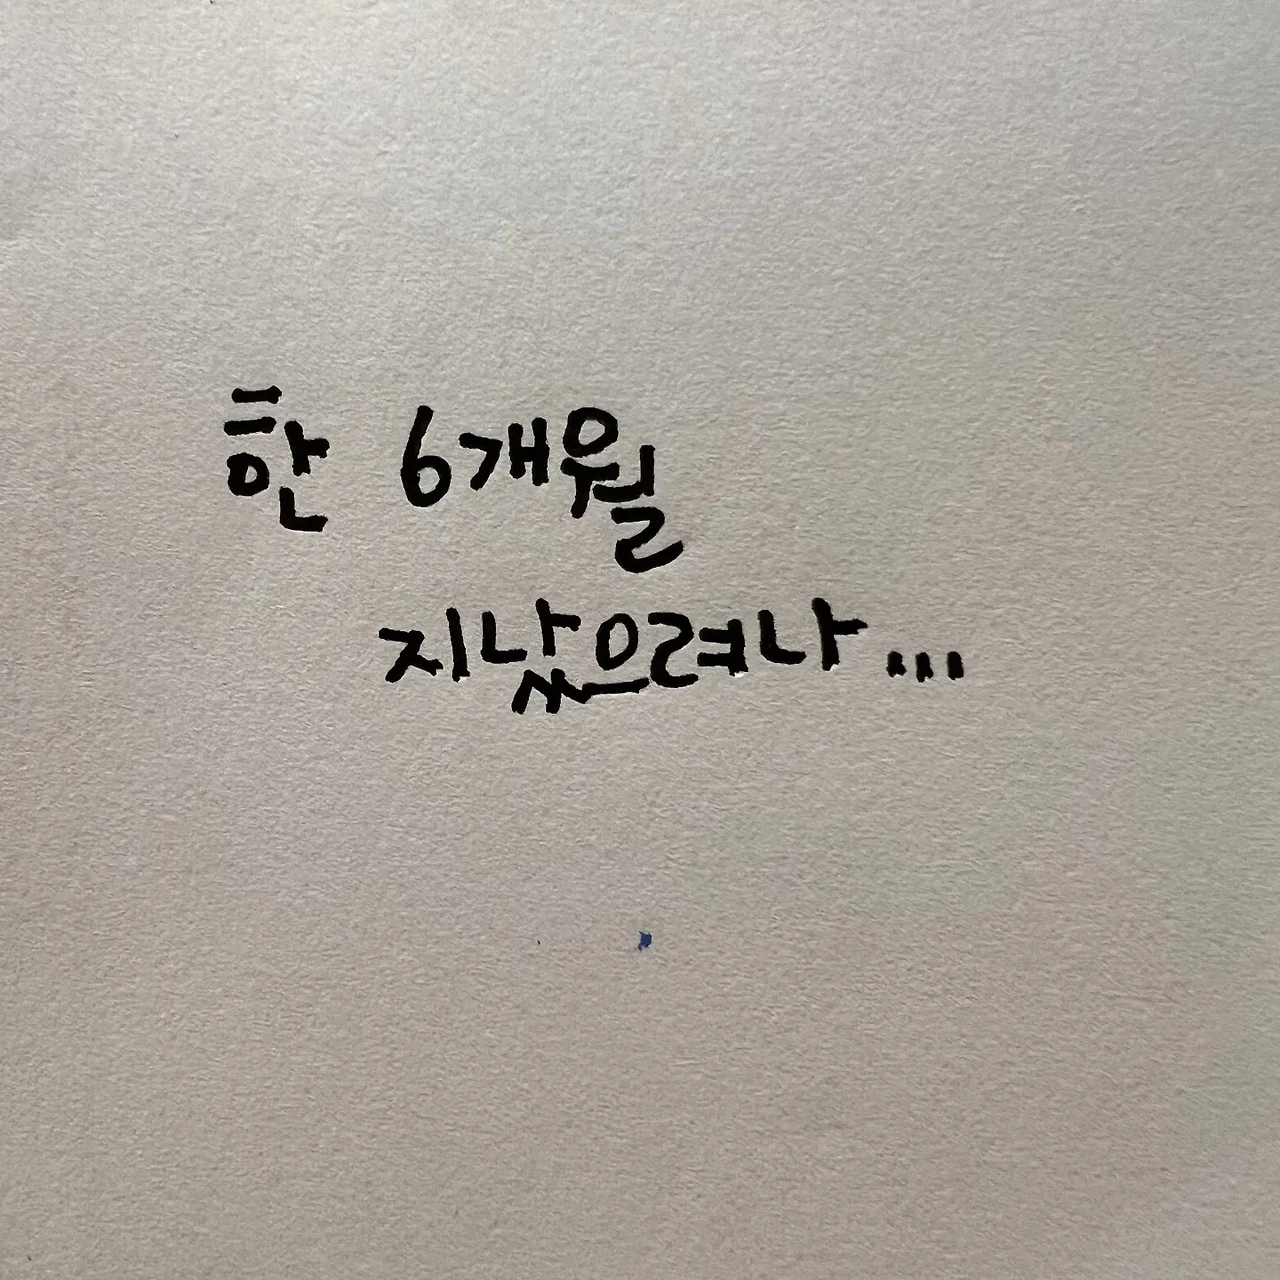 한 6개월
지났으려나...